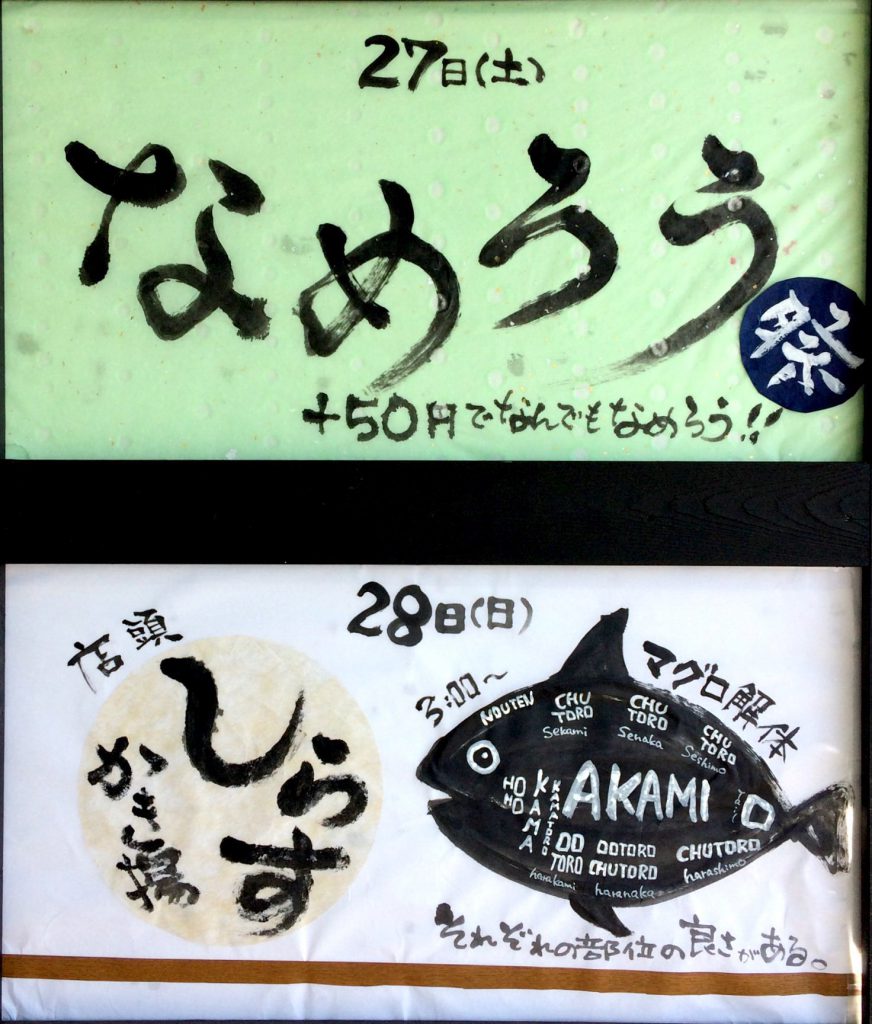 27日(土)
なめろう
祭
+50円でなんでもなめろう!!
28日(日)
店頭
しらす
かき揚
3:00〜
マグロ解体
NOUTEN
CHU
TORO
Sekami
CHU
TORO
Senaka
CHU
TORO
Seshimo
HO
HO
KAMA
KAMATORO
AKAMI
Tail
OO
TORO
harakami
OOTORO
CHUTORO
haranaka
CHUTORO
harashimo
それぞれの部位の良さがある。